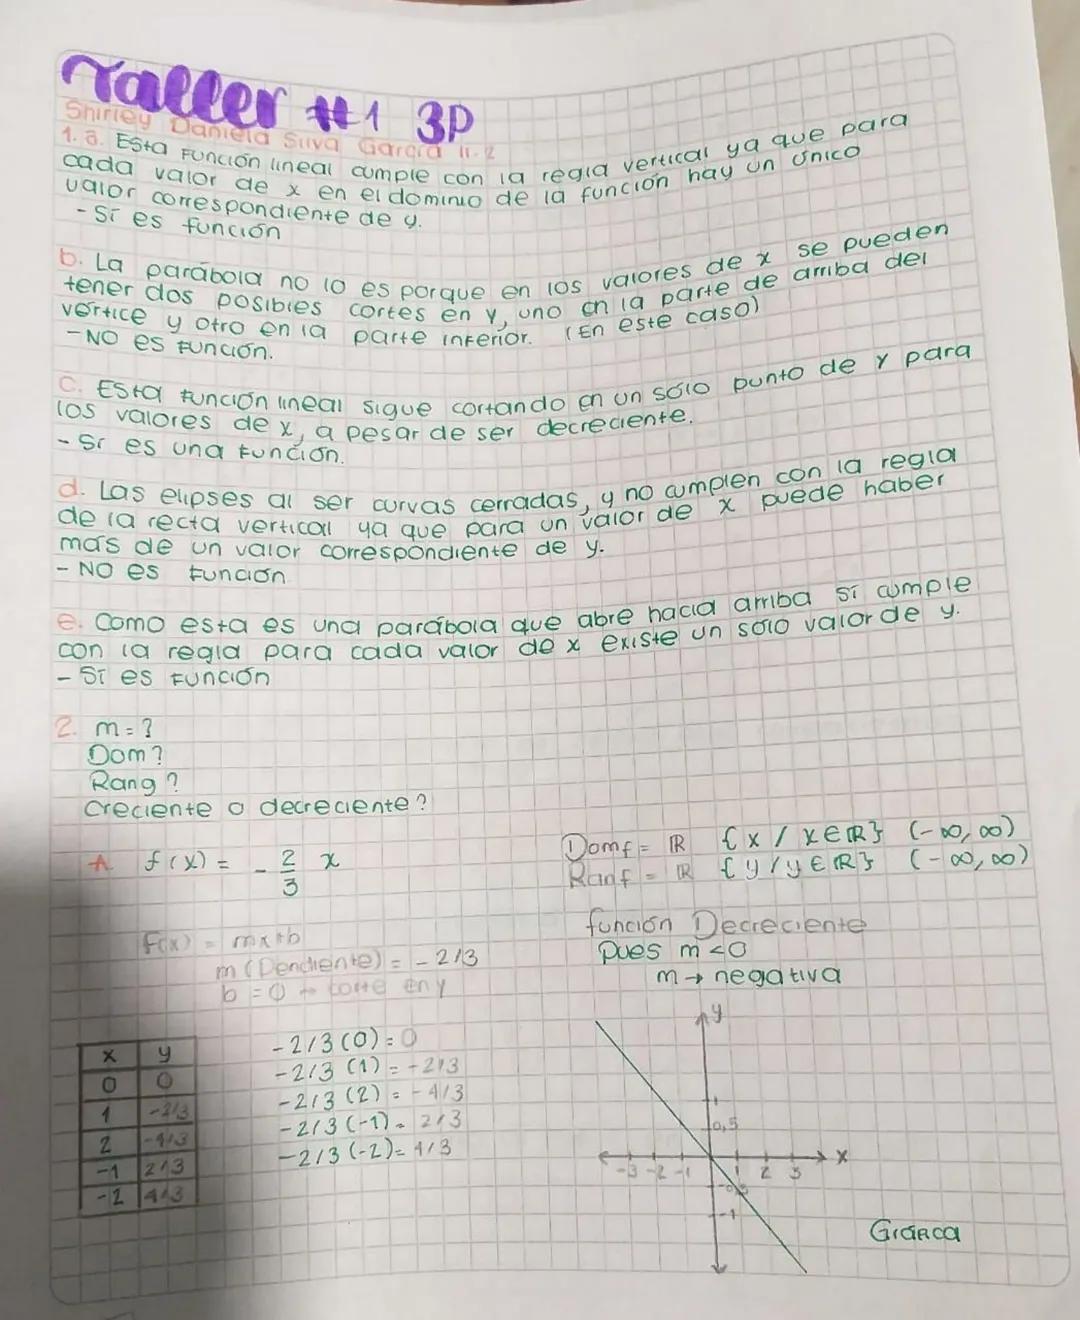 Taller #1 3P
Shirley Daniela Silva García 11.2
1. a. Esta función lineal cumple con la regla vertical ya que para
cada valor de x en el dominio de la función hay un único
valor correspondiente de y.
- Sí es función
b. La parábola no lo es porque en los valores de x se pueden
tener dos posibles cortes en y, uno en la parte de arriba del
vértice y otro en la parte inferior. (En este caso)
- NO es función.
C. Esta función lineal sigue cortando en un sólo punto de y para
los valores de x, a pesar de ser decreciente.
- Sí es una función.
d. Las elipses al ser curvas cerradas, y no cumplen con la regla
de la recta vertical ya que para un valor de x puede haber
más de un valor correspondiente de y.
- NO es función
e. Como esta es una parábola que abre hacia arriba sí cumple
con la regla para cada valor de x existe un solo valor de y.
- Sí es función
2. m = ?
Dom?
Rang?
Creciente o decreciente?
A f(x) = - 2/3 x
Domf = ℝ {x / x ∈ ℝ} (-∞, ∞)
Ranf = ℝ {y / y ∈ ℝ} (-∞, ∞)
f(x) = mx+b
m (Pendiente) = -2/3
b = 0 → corte en y
función Decreciente
pues m < 0
m → negativa
x y
0 0
1 -2/3
2 -4/3
-1 2/3
-2 4/3
-2/3 (0) = 0
-2/3 (1) = -2/3
-2/3 (2) = -4/3
-2/3 (-1) = 2/3
-2/3 (-2) = 4/3
y
1
0,5
-3 -2 -1 1 2 3 x
-0,5
-1
Gráfica